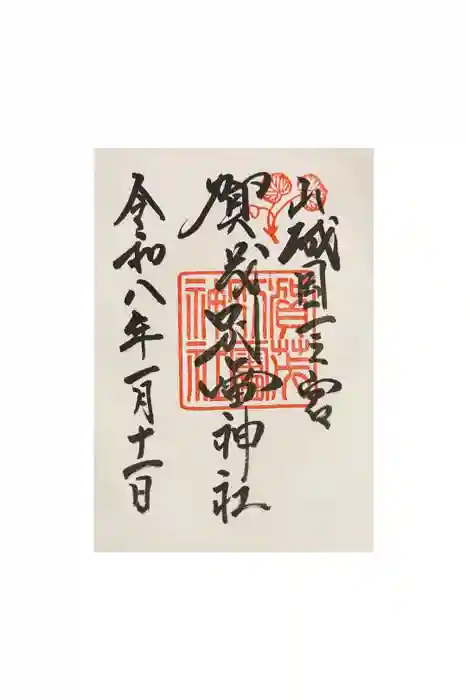 山城国一之宮
賀茂別雷神社
令和八年一月十一日
賀茂別雷神社